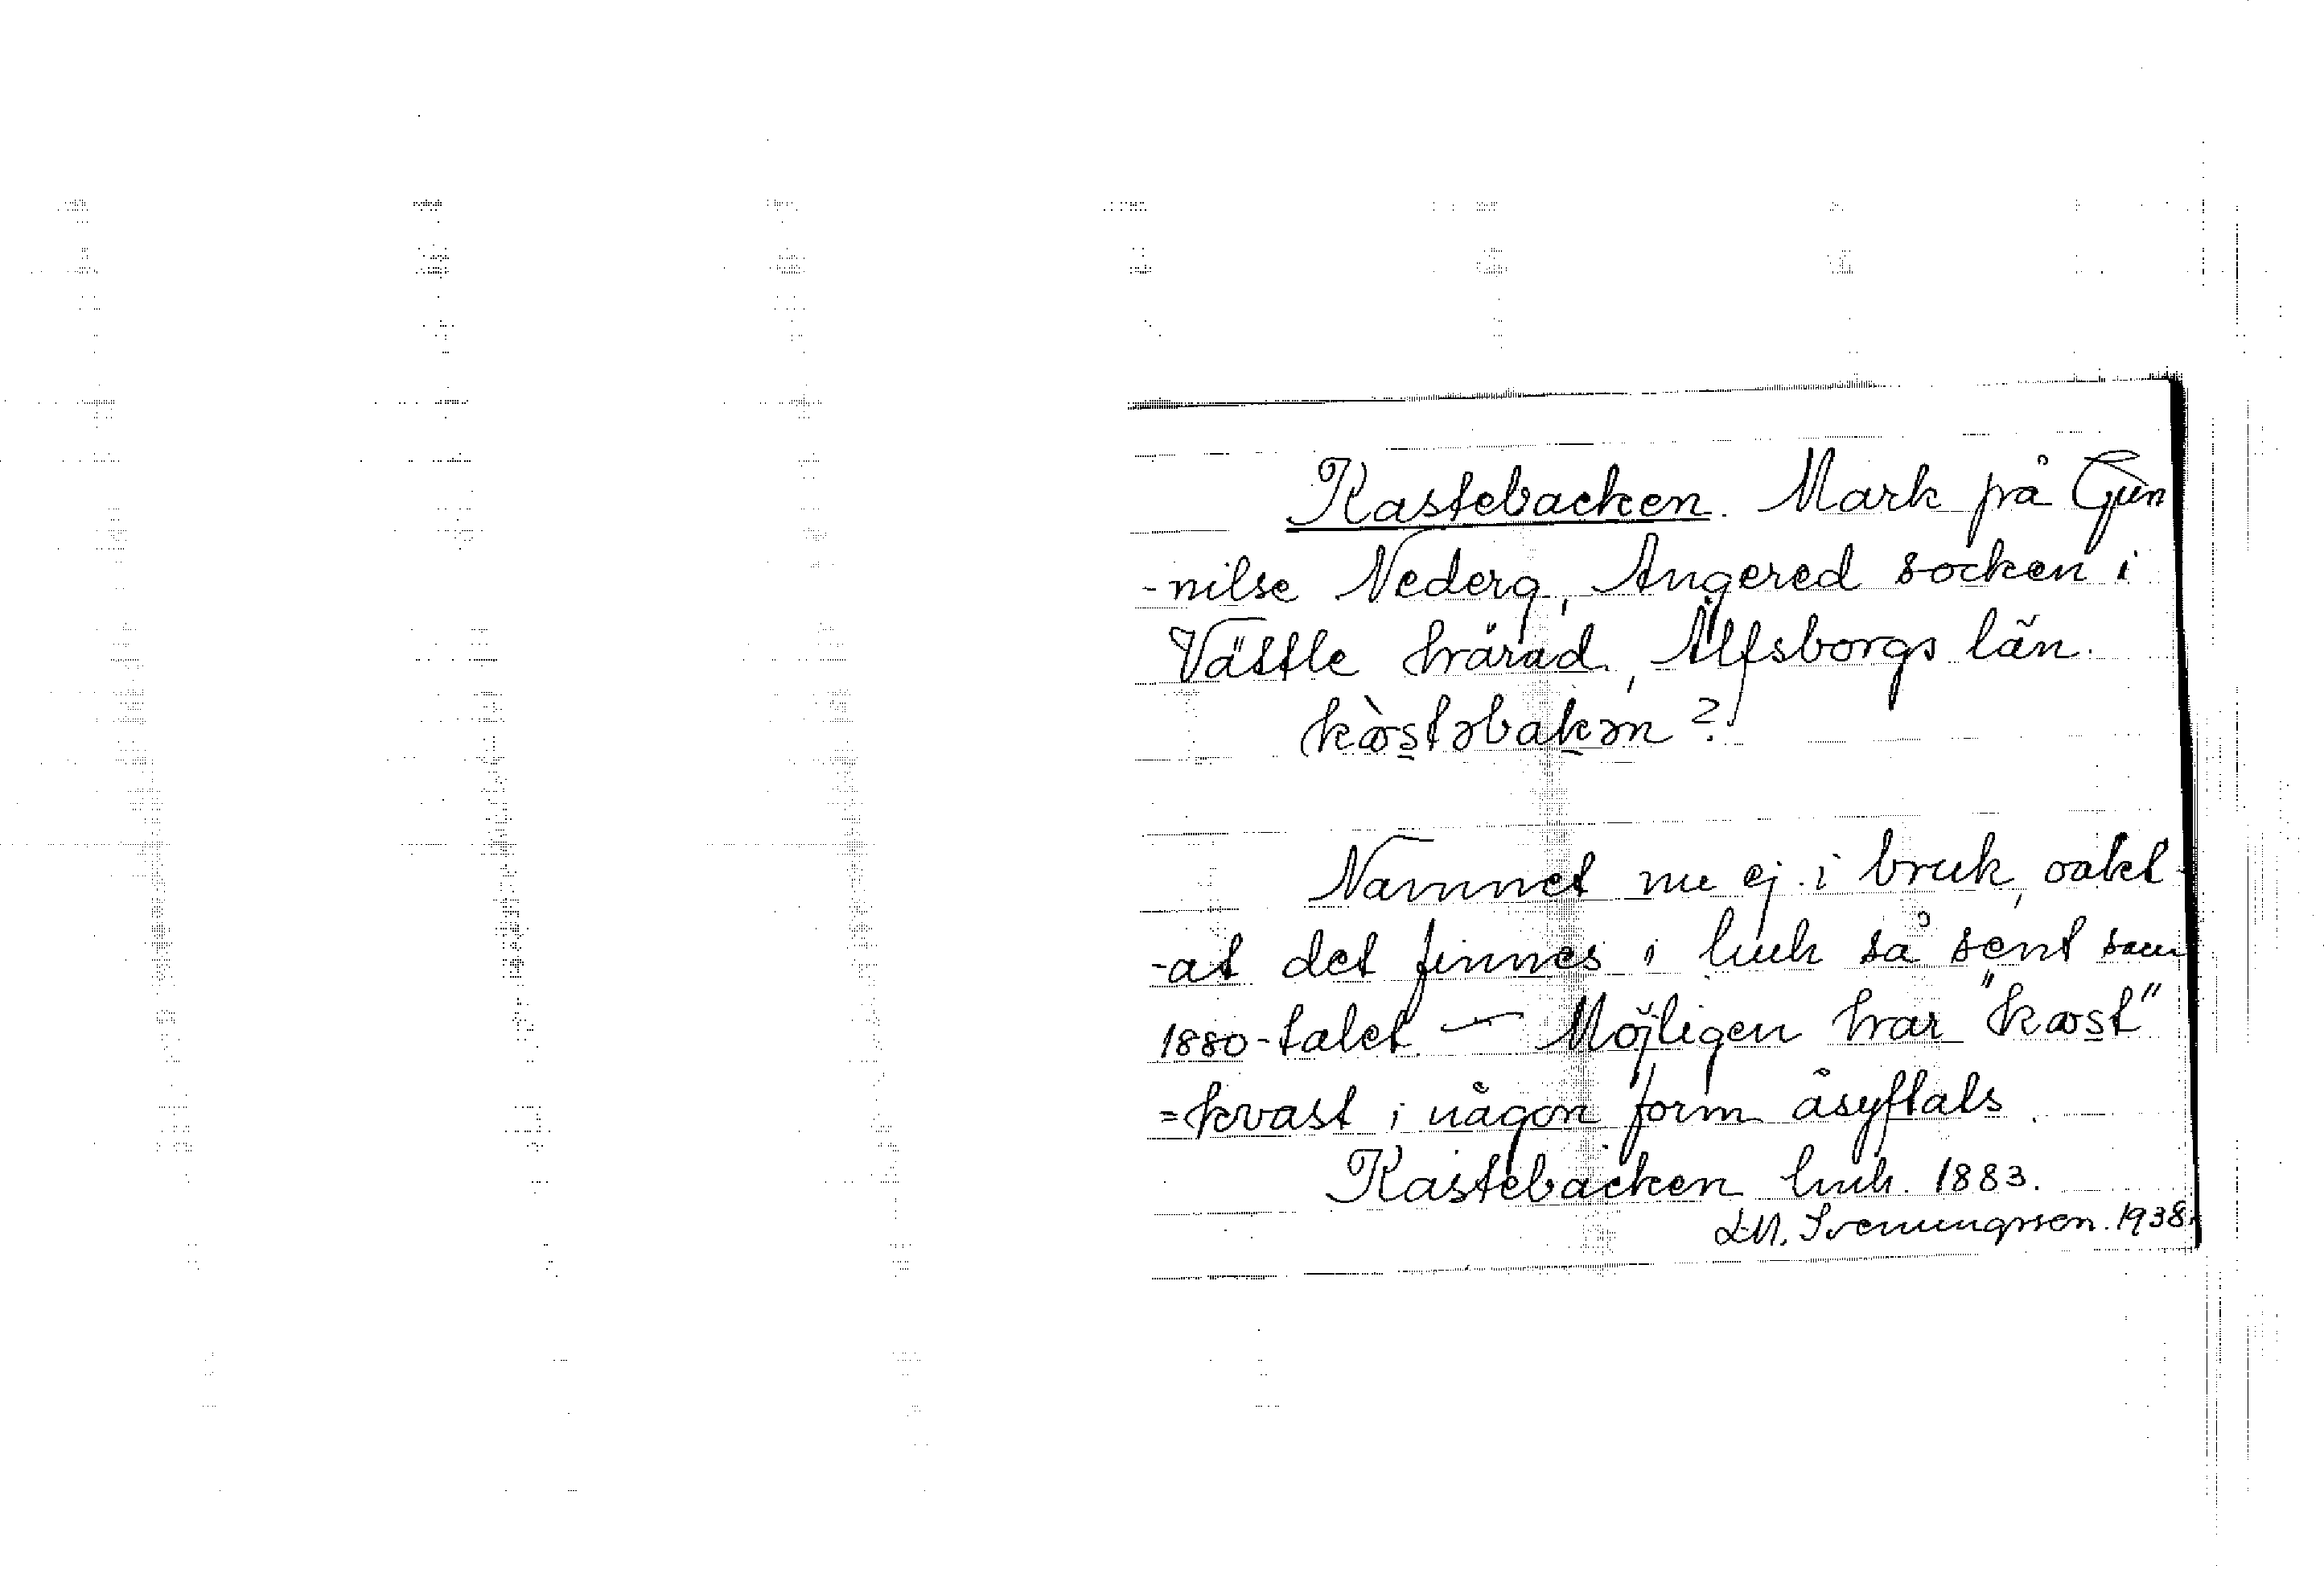 Kastebacken. Mark på Gun
-nilse Nederg, Angered socken i
Vättle härad, Älfsborgs län.
kòstəbakən?
Namnet nu ej i bruk, oakt-
-at det finnes i hmh så sent som
1880-talet — Möjligen har "kost"
=kvast i någon form åsyftats.
Kastebacken hmh. 1883.
1938.